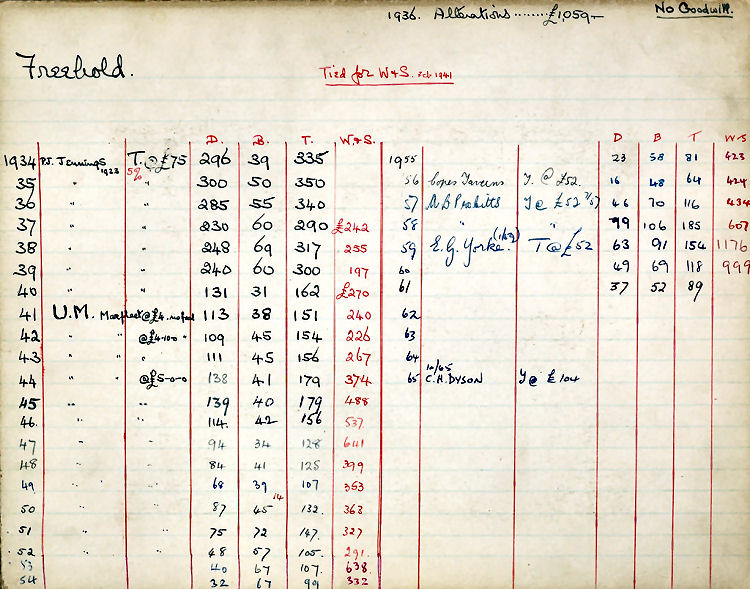 1936. Alterations ........ £1,059 –
No Goodwill.
Freehold.
Tied for W & S. Feb 1941
D. B. T. W. & S. D B T W S
1934 P.J. Jennings 1923 T. @ £75 296 39 335 1955 23 58 81 423
35 " 5% " 300 50 350 56 Copes Taverns T. @ £52. 16 48 64 424
36 " " 285 55 340 57 T @ £52 46 70 116 434
37 " " 230 60 290 £242 58 " " 79 106 185 607
38 " " 248 69 317 255 59 E.G. Yorke. T @ £52 63 91 154 1176
39 " " 240 60 300 197 60 49 69 118 999
40 " " 131 31 162 £270 61 37 52 89
41 U.M. Marfleet @ £4. 113 38 151 240 62
42 " " @ £4-10-0 " 109 45 154 226 63
43 " " " 111 45 156 267 64
44 " " @ £5-0-0 138 41 179 374 65 10/65 C.H. DYSON T @ £104
45 " " 139 40 179 488
46. " " 114. 42 156 537
47 " " 94 34 128 641
48 " " 84 41 125 399
49 " " 68 39 107 353
50 " " 87 45 14 132. 363
51 " " 75 72 147. 327
52 " " 48 57 105. 291.
53 40 67 107. 638.
54 32 67 99 332